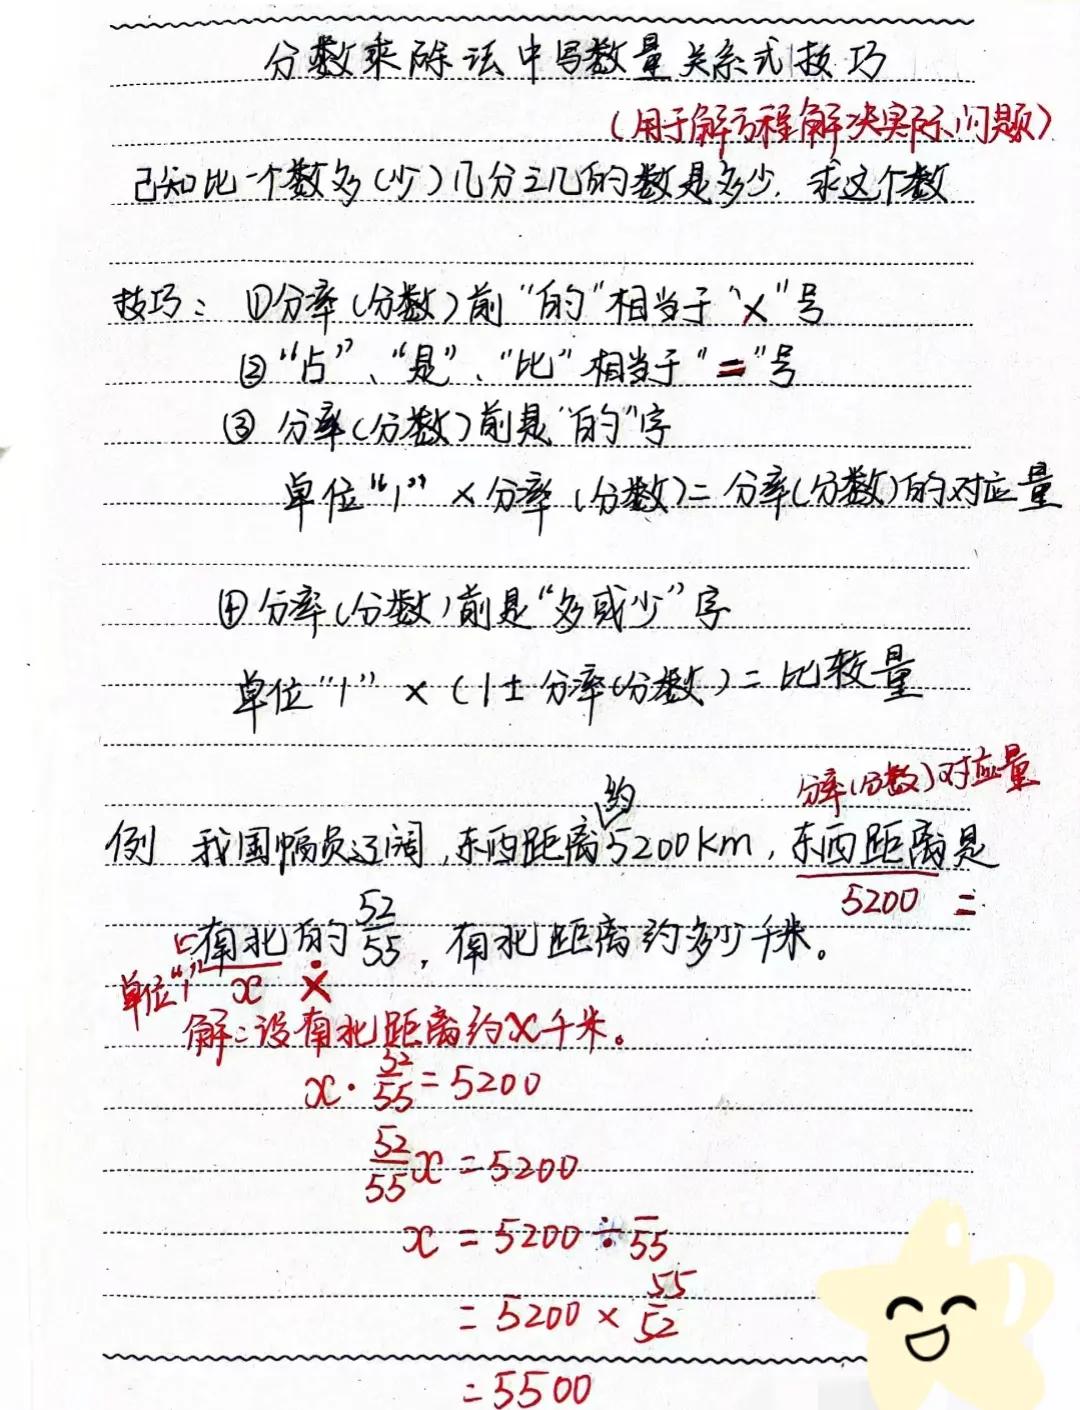 分数乘除法中写数量关系式技巧
(用于解方程解决实际问题)
已知比一个数多(少)几分之几的数是多少.求这个数
技巧: ①分率(分数)前“的”相当于“×”号
②“占”、“是”、“比”相当于“=”号
③分率(分数)前是“的”字
单位“1”×分率(分数)=分率(分数)的对应量
④分率(分数)前是“多或少”字
单位“1”×(1±分率(分数)=比较量
分率(分数)对应量
约
例 我国幅员辽阔,东西距离5200km,东西距离是
5200 =
南北的52/55,南北距离约多少千米。
单位“1” x ×
解:设南北距离约x千米。
x·52/55=5200
52/55x=5200
x=5200÷/55
=5200×55/52
=5500